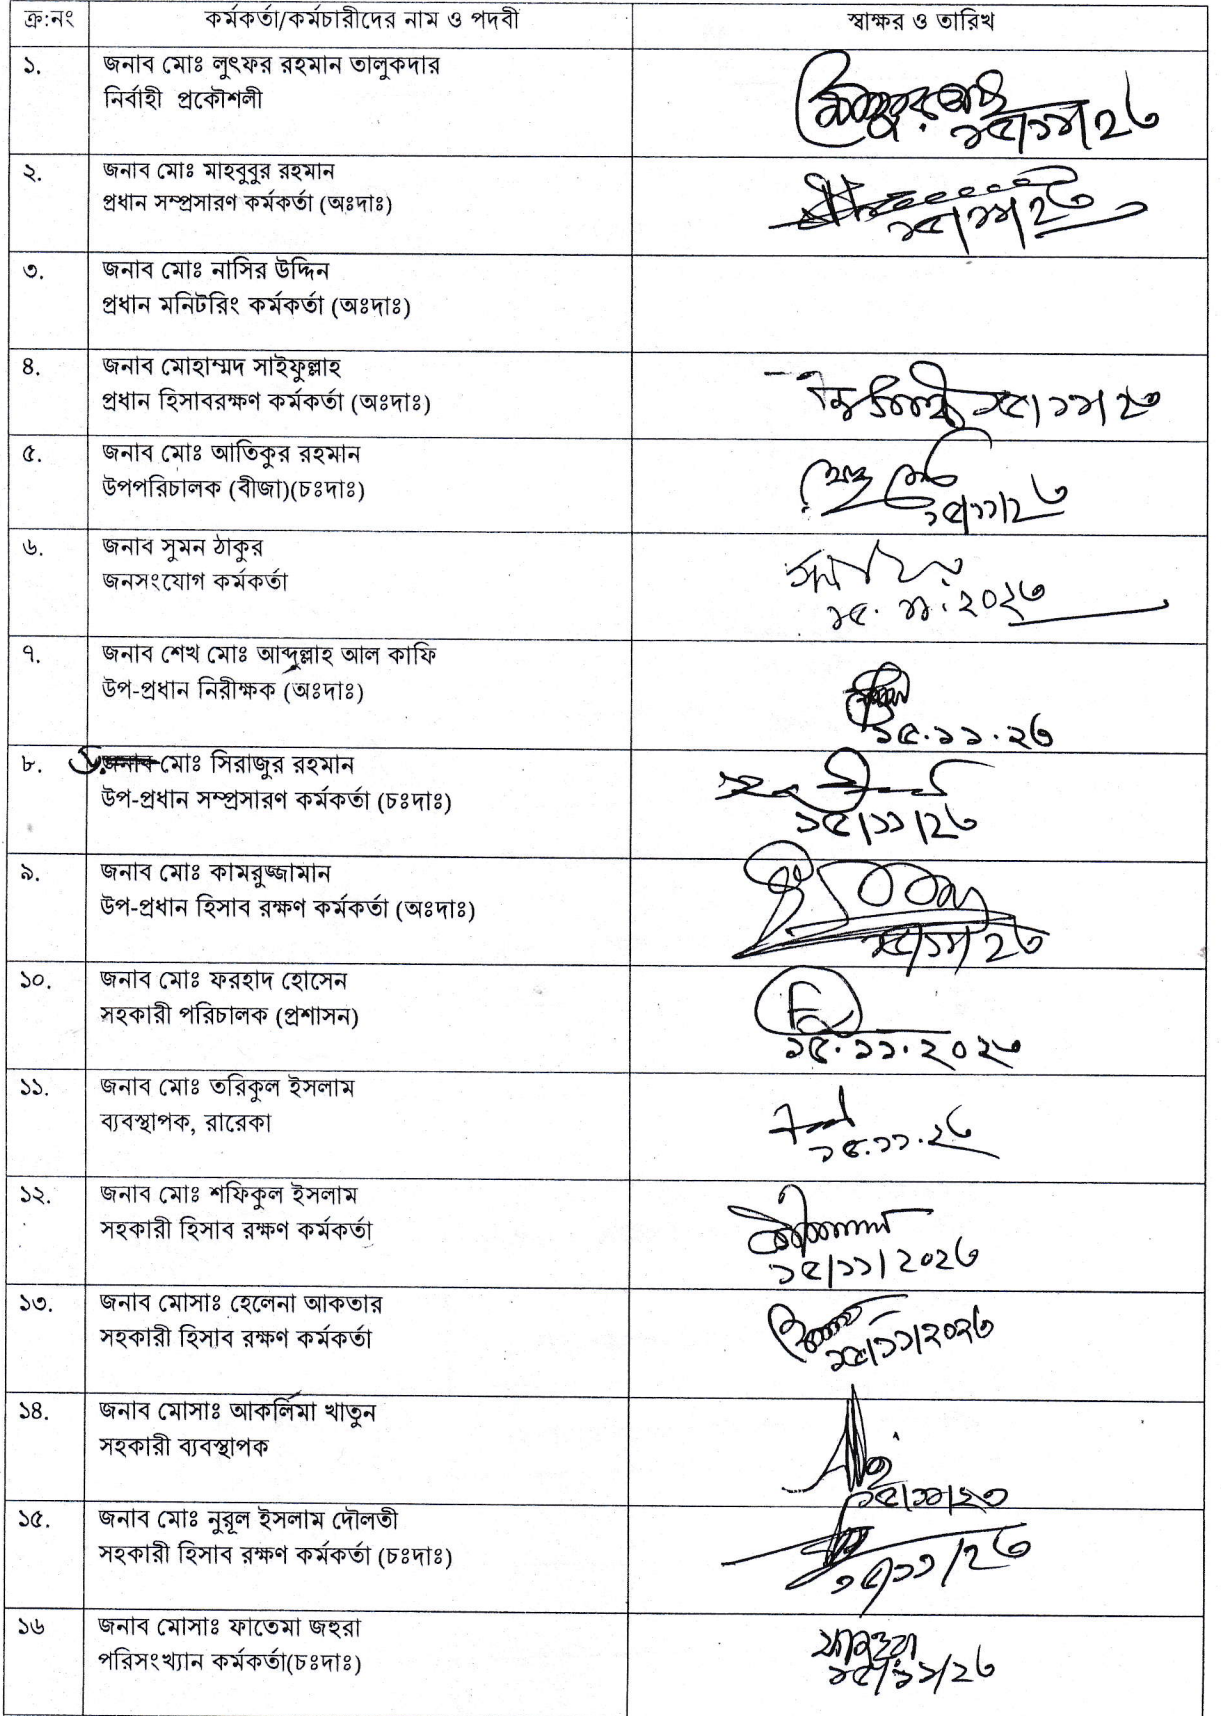 ক্র:নং কর্মকর্তা/কর্মচারীদের নাম ও পদবী স্বাক্ষর ও তারিখ
১. জনাব মোঃ লুৎফর রহমান তালুকদার
নির্বাহী প্রকৌশলী
১৫/১১/২৩
২. জনাব মোঃ মাহবুবুর রহমান
প্রধান সম্প্রসারণ কর্মকর্তা (অঃদাঃ)
১৫/১১/২৩
৩. জনাব মোঃ নাসির উদ্দিন
প্রধান মনিটরিং কর্মকর্তা (অঃদাঃ)
৪. জনাব মোহাম্মদ সাইফুল্লাহ
প্রধান হিসাবরক্ষণ কর্মকর্তা (অঃদাঃ) ১৫/১১/২৩
৫. জনাব মোঃ আতিকুর রহমান
উপপরিচালক (বীজা)(চঃদাঃ)
১৫/১১/২৩
৬. জনাব সুমন ঠাকুর
জনসংযোগ কর্মকর্তা
১৫.১১.২০২৩
৭. জনাব শেখ মোঃ আব্দুল্লাহ আল কাফি
উপ-প্রধান নিরীক্ষক (অঃদাঃ)
১৫.১১.২৩
৮. জনাব মোঃ সিরাজুর রহমান
উপ-প্রধান সম্প্রসারণ কর্মকর্তা (চঃদাঃ)
১৫/১১/২৩
৯. জনাব মোঃ কামরুজ্জামান
উপ-প্রধান হিসাব রক্ষণ কর্মকর্তা (অঃদাঃ)
১৫/১১/২৩
১০. জনাব মোঃ ফরহাদ হোসেন
সহকারী পরিচালক (প্রশাসন)
১৫.১১.২০২৩
১১. জনাব মোঃ তরিকুল ইসলাম
ব্যবস্থাপক, রারেকা
১৫.১১.২৩
১২. জনাব মোঃ শফিকুল ইসলাম
সহকারী হিসাব রক্ষণ কর্মকর্তা
১৫/১১/২০২৩
১৩. জনাব মোসাঃ হেলেনা আকতার
সহকারী হিসাব রক্ষণ কর্মকর্তা
১৫/১১/২০২৩
১৪. জনাব মোসাঃ আকলিমা খাতুন
সহকারী ব্যবস্থাপক
১৫/১১/২৩
১৫. জনাব মোঃ নুরূল ইসলাম দৌলতী
সহকারী হিসাব রক্ষণ কর্মকর্তা (চঃদাঃ)
১৫/১১/২৩
১৬ জনাব মোসাঃ ফাতেমা জহুরা
পরিসংখ্যান কর্মকর্তা(চঃদাঃ)
১৫/১১/২৩